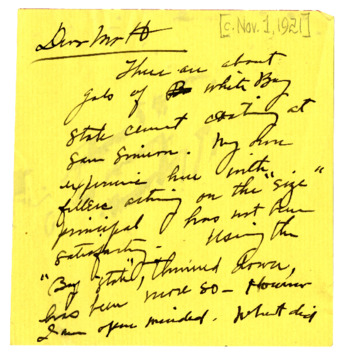 [c. Nov. 1, 1921]
Dear Mr H
There are about
gals of white Bay
State cement coating at
San Simeon. My own
experience here with
fillers acting on the "size"
principal has not been
satisfactory. Using the
"Bay State", thinned down,
has been more so - However
I am open minded. What did